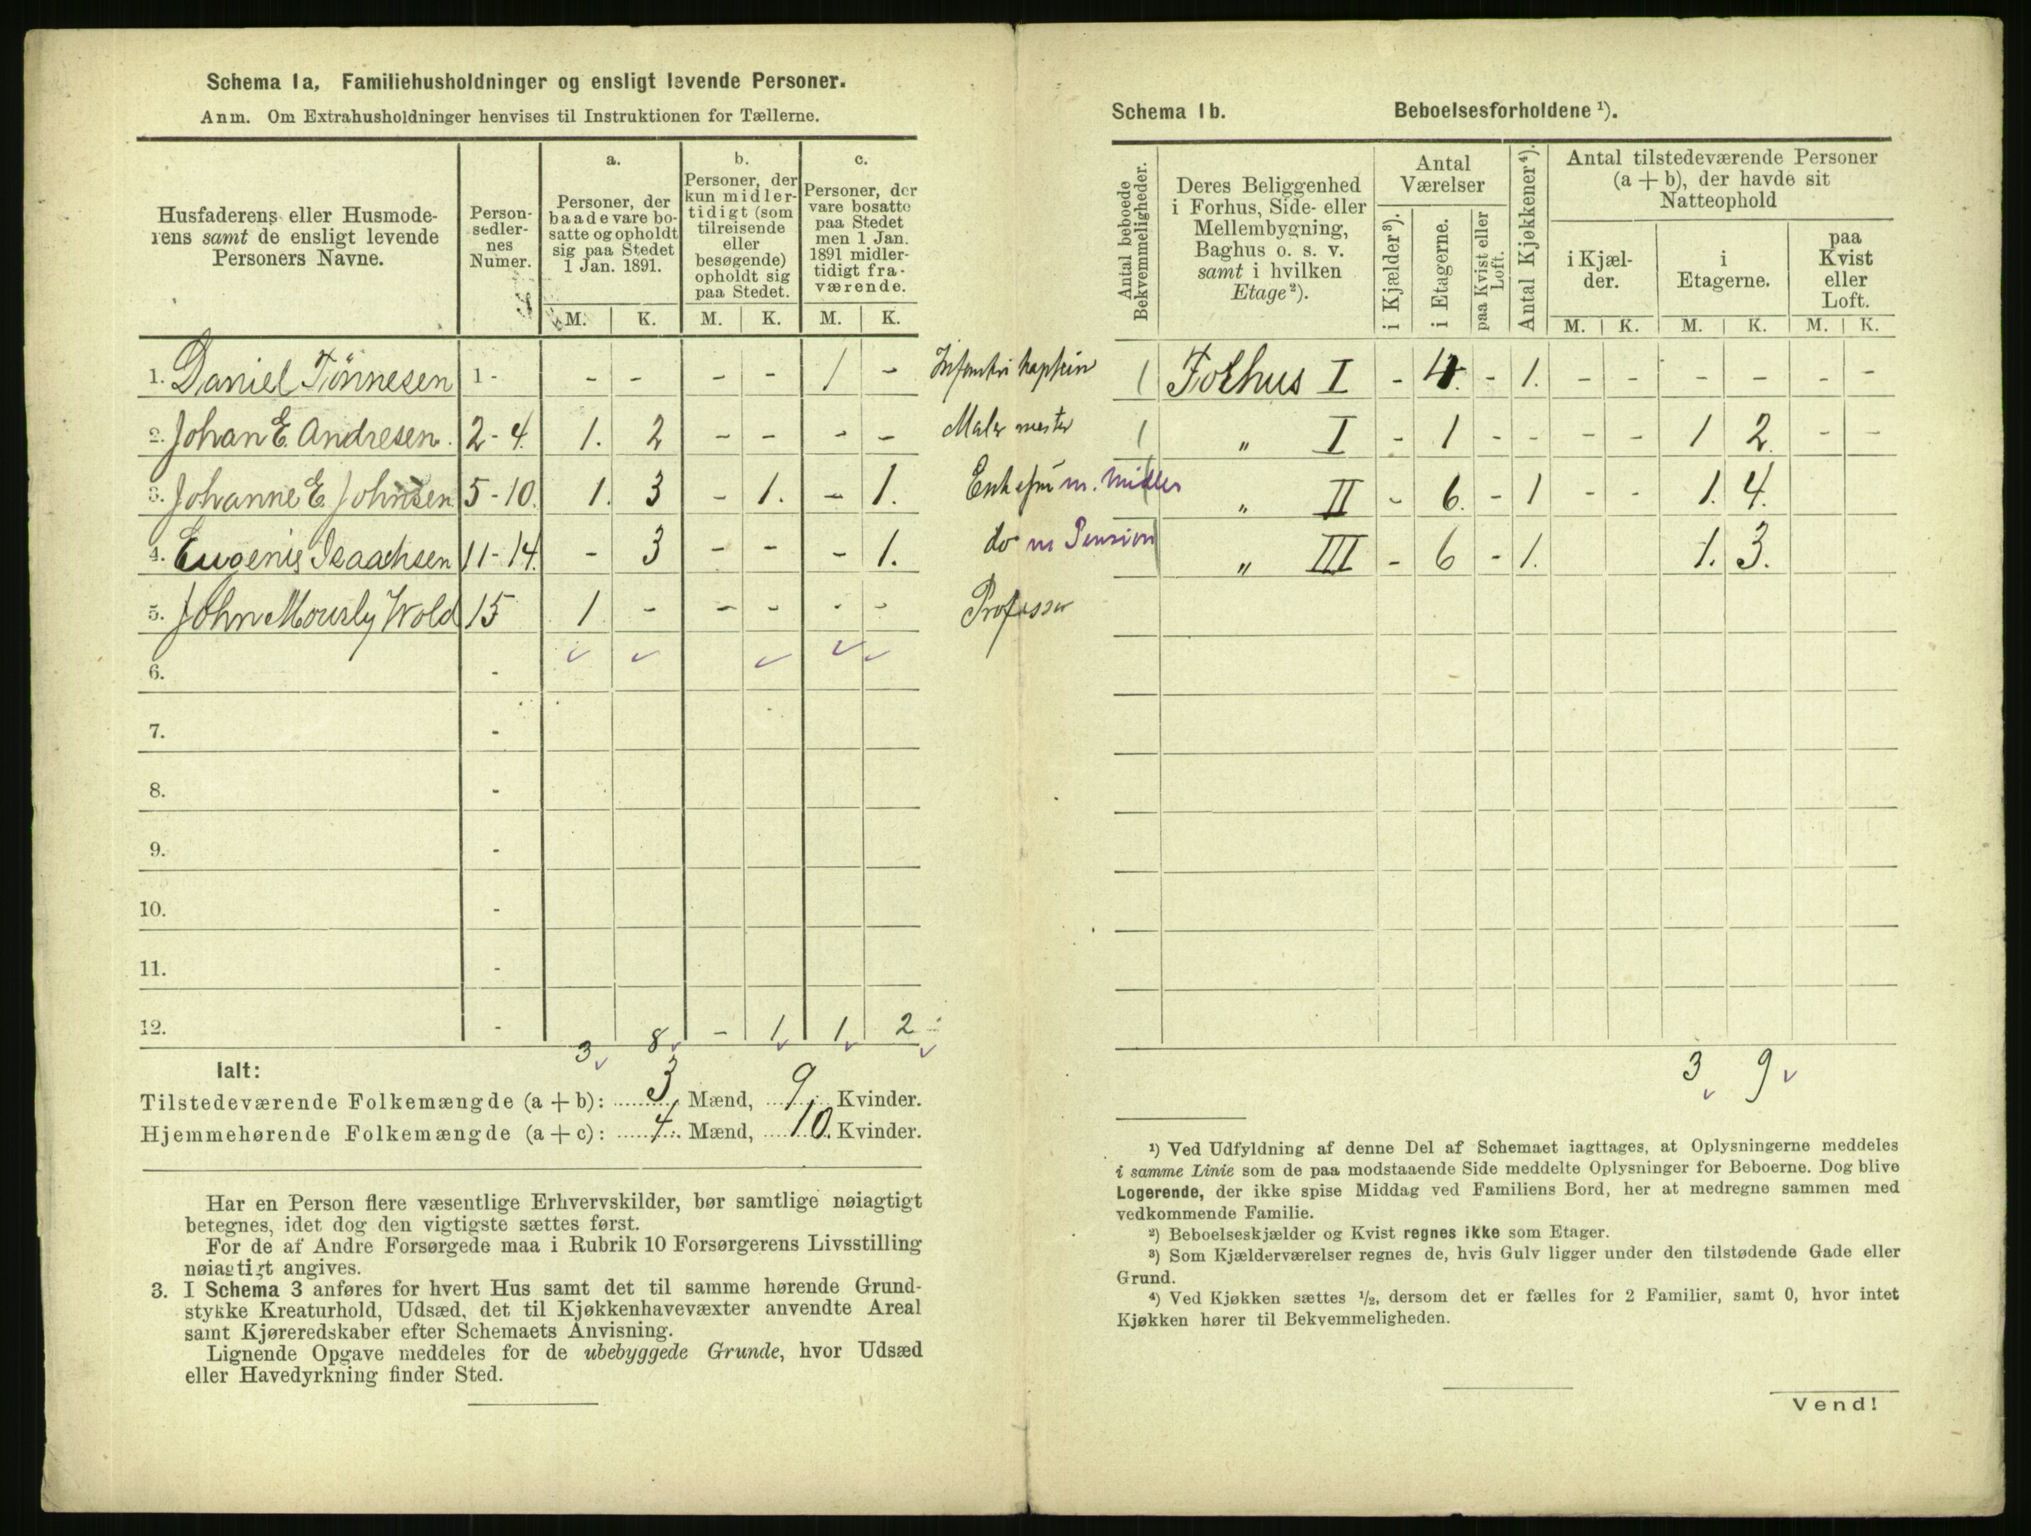 Schema 1a, Familiehusholdninger og ensligt levende Personer.
Anm. Om Extrahusholdninger henvises til Instruktionen for Tællerne.
Husfaderens eller Husmode-
rens samt de ensligt levende
Personers Navne.
Person-
sedler-
nes
Numer.
a.
Personer, der
baade vare bo-
satte og opholdt
sig paa Stedet
1 Jan. 1891.
b.
Personer, der
kun midler-
tidigt (som
tilreisende
eller
besøgende)
opholdt sig
paa Stedet.
c.
Personer, der
vare bosatte
paa Stedet
men 1 Jan.
1891 midler-
tidigt fra-
værende.
M. K. M. K. M. K.
1. Daniel Tönnesen 1 - - - - - 1 - Infanterikaptein
2. Johan E. Andresen. 2 - 4. 1. 2 - - - - Malermester
3. Johanne E. Johnsen 5 - 10. 1. 3 - 1. - 1. Enkefru m. Midler
4. Eugenie Isaachsen 11 - 14. - 3 - - - 1. do m Pension
5. John Mourly Wold 15 1 - - - - - Professor
6. -
7. -
8. -
9. -
10. -
11. -
12. -
3 8 - 1 1 2
Ialt:
Tilstedeværende Folkemængde (a + b): 3 Mænd, 9 Kvinder.
Hjemmehørende Folkemængde (a + c): 4 Mænd, 10. Kvinder.
Har en Person flere væsentlige Erhvervskilder, bør samtlige nøiagtigt
betegnes, idet dog den vigtigste sættes først.
For de af Andre Forsørgede maa i Rubrik 10 Forsørgerens Livsstilling
nøiagtigt angives.
3. I Schema 3 anføres for hvert Hus samt det til samme hørende Grund-
stykke Kreaturhold, Udsæd, det til Kjøkkenhavevæxter anvendte Areal
samt Kjøreredskaber efter Schemaets Anvisning.
Lignende Opgave meddeles for de ubebyggede Grunde, hvor Udsæd
eller Havedyrkning finder Sted.
Schema 1b. Beboelsesforholdene ¹).
Antal beboede
Bekvemmeligheder.
Deres Beliggenhed
i Forhus, Side- eller
Mellembygning,
Baghus o. s. v.
samt i hvilken
Etage²).
Antal
Værelser
i Kjælder³).
i Etagerne.
paa Kvist eller
Loft.
Antal Kjøkkener⁴).
Antal tilstedeværende Personer
(a + b), der havde sit
Natteophold
i Kjæl-
der.
i
Etagerne.
paa
Kvist
eller
Loft.
M. K. M. K. M. K.
1 Forhus I - 4. - 1. - - - - - -
1 " I - 1 - - - - 1 2 - -
1 " II - 6. - 1 - - 1. 4.
1 " III - 6 - 1. 1. 3.
3 9
¹) Ved Udfyldning af denne Del af Schemaet iagttages, at Oplysningerne meddeles
i samme Linie som de paa modstaaende Side meddelte Oplysninger for Beboerne. Dog blive
Logerende, der ikke spise Middag ved Familiens Bord, her at medregne sammen med
vedkommende Familie.
²) Beboelseskjælder og Kvist regnes ikke som Etager.
³) Som Kjælderværelser regnes de, hvis Gulv ligger under den tilstødende Gade eller
Grund.
⁴) Ved Kjøkken sættes ½, dersom det er fælles for 2 Familier, samt 0, hvor intet
Kjøkken hører til Bekvemmeligheden.
Vend!